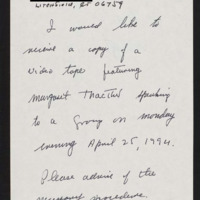 Litchfield, CT 06759
I would like to
receive a copy of a
video tape featuring
Margaret Thatcher speaking
to a group on Monday
evening April 25, 1994.
Please advise of the
necessary procedure